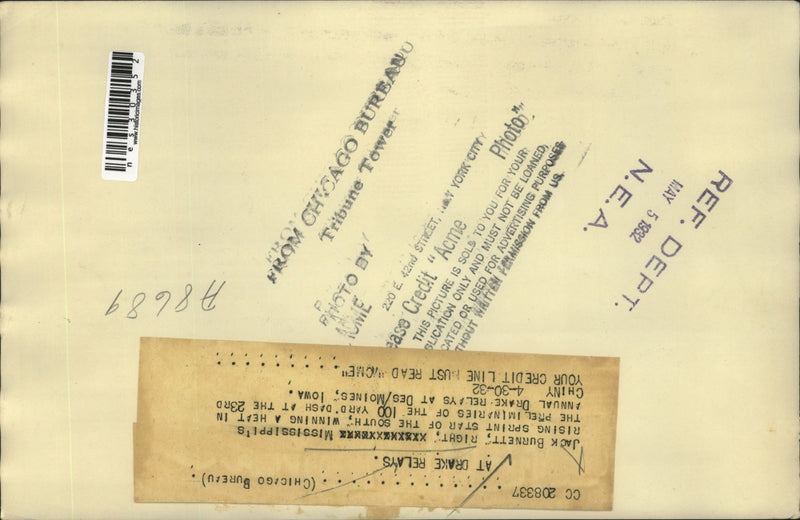 nes30352
www.historicimages.com
FROM CHICAGO BUREAU
Tribune Tower
PHOTO BY
ACME
220 E. 42nd STREET, NEW YORK CITY
Credit "Acme Photo"
THIS PICTURE IS SOLD TO YOU FOR YOUR
PUBLICATION ONLY AND MUST NOT BE LOANED,
OR USED FOR ADVERTISING PURPOSES
WITHOUT WRITTEN PERMISSION FROM US.
REF. DEPT.
MAY 5 1932
N.E.A.
A8689
CC 208337 . . . . . . . . . . . . (CHICAGO BUREAU.)
AT DRAKE RELAYS.
JACK BURNETT, RIGHT, XXXXXXXXXXXX MISSISSIPPI'S
RISING SPRINT STAR OF THE SOUTH, WINNING A HEAT IN
THE PRELIMINARIES OF THE 100 YARD DASH AT THE 23RD
ANNUAL DRAKE RELAYS AT DES/MOINES, IOWA.
CHINY 4-30-32
YOUR CREDIT LINE MUST READ "ACME"